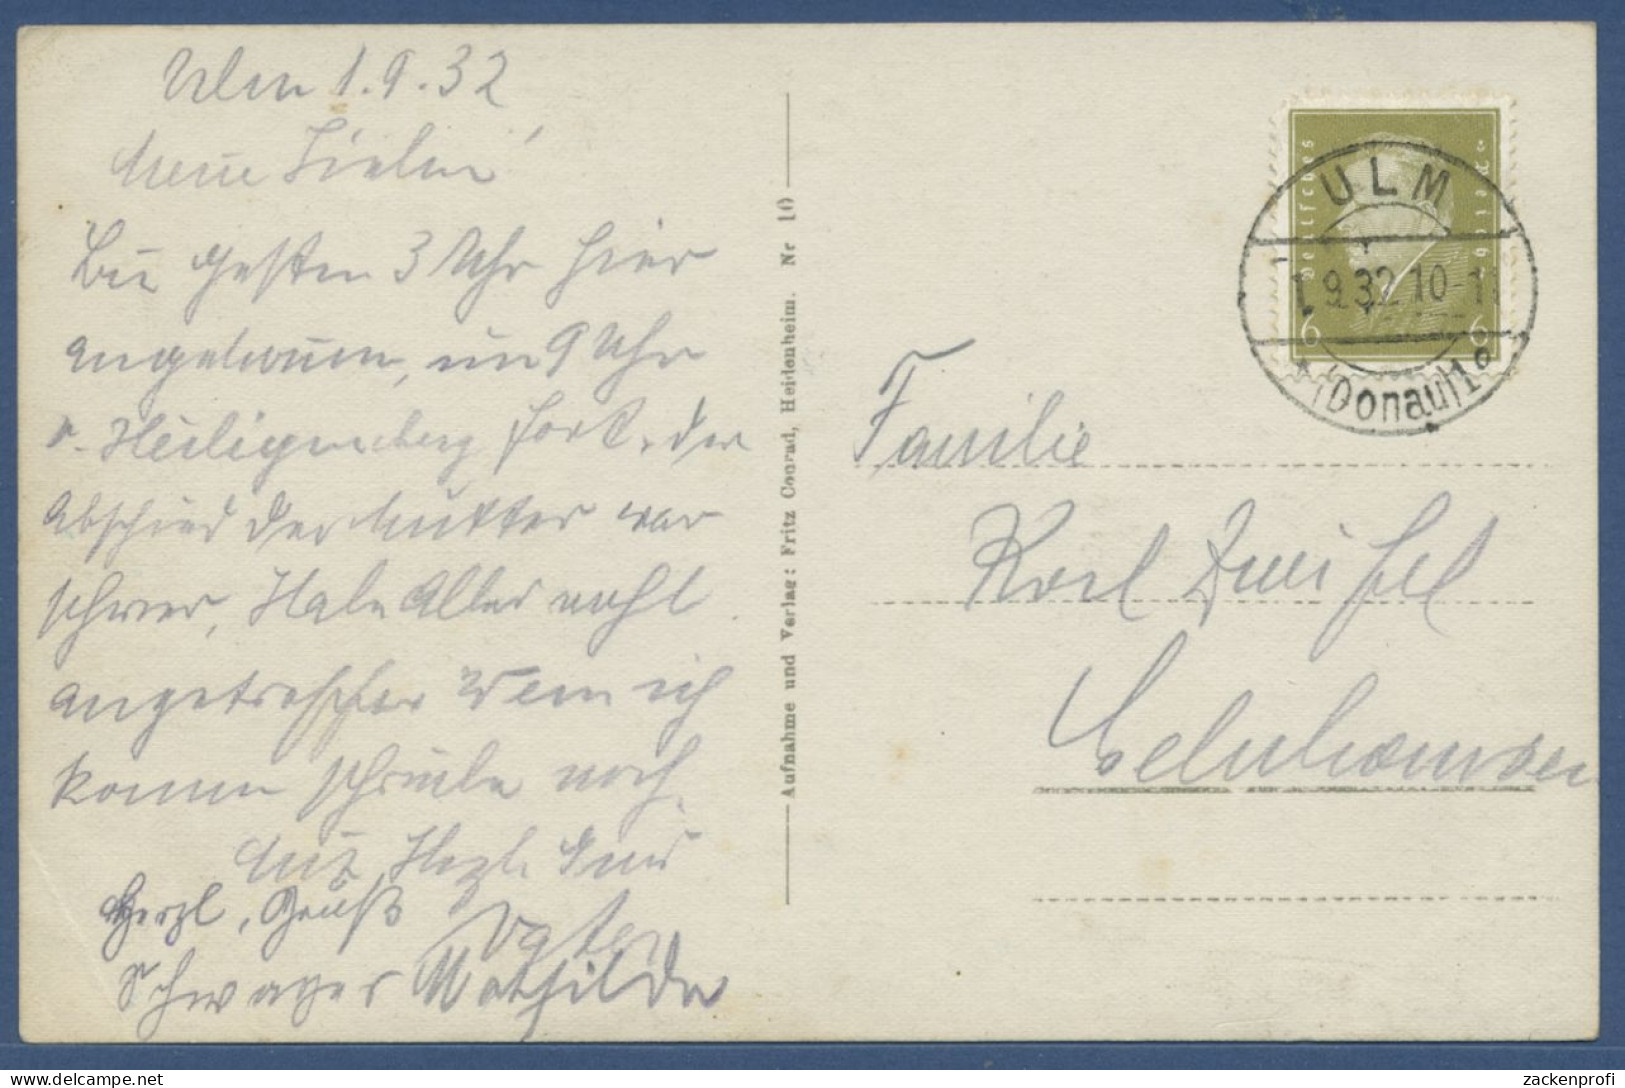 Ulm 1.9.32
Meine Lieben!
Bin gestern 3 Uhr hier
angekommen, um 9 Uhr
v. Heiligenberg fort. der
Abschied der Mutter war
schwer, Habe Alles wohl
angetroffen Wenn ich
komme schreibe noch.
Mit Herzl. Gruß
Vater
Herzl. Gruß
Schwager Mathilde
Aufnahme und Verlag: Fritz Conrad, Heidenheim. Nr 10
Deutsches Reich
6 6
ULM
1.9.32.10-11
* (Donau) 1 o
Familie
Karl Zweifel
zackenprofi